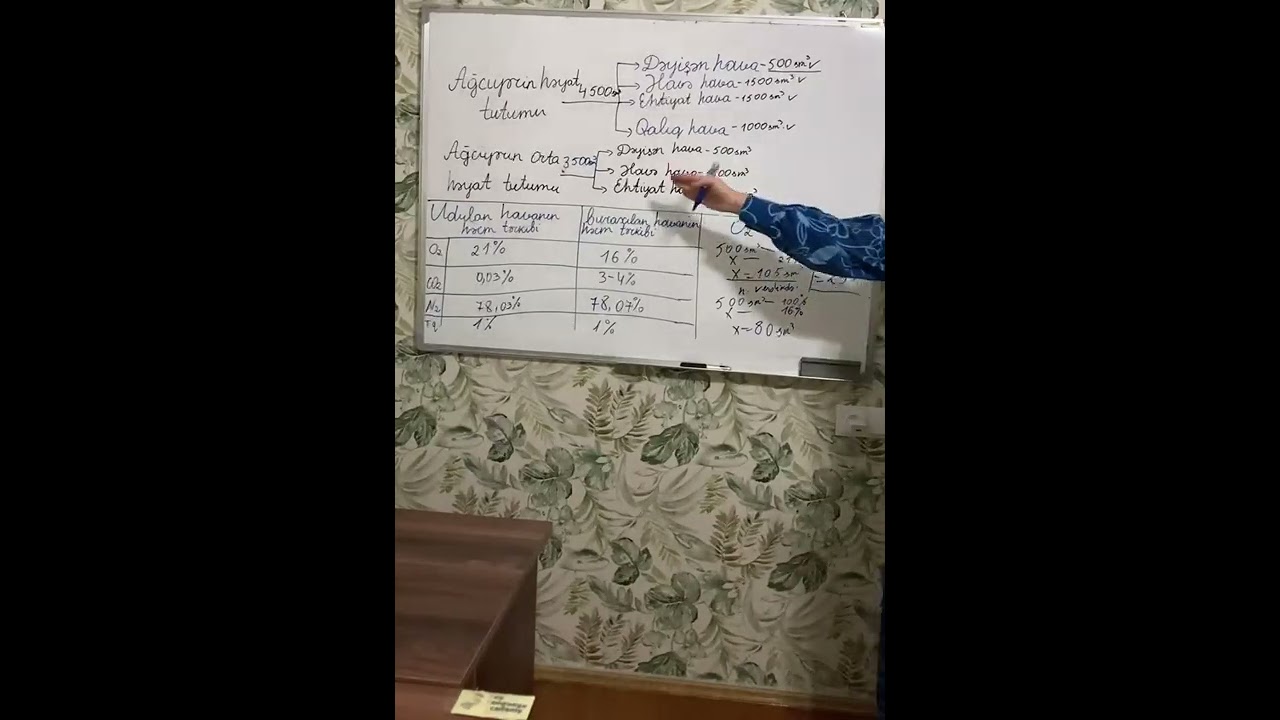 Ağciyərin həyat 4500sm³
tutumu
Dəyişən hava - 500sm³ v
Əlavə hava - 1500sm³ v
Ehtiyat hava - 1500sm³ v
Qalıq hava - 1000sm³ v
Ağciyərin orta 3500sm³
həyat tutumu
Dəyişən hava - 500sm³
Əlavə hava
Ehtiyat
Udulan havanın
həcm tərkibi
buraxılan havanın
həcm tərkibi
O₂ 21% 16%
CO₂ 0,03% 3-4%
N₂ 78,03% 78,07%
T.q. 1% 1%
O₂
500sm³ —
x —
x = 105sm³
500sm³ — 100%
x — 16%
x = 80sm³